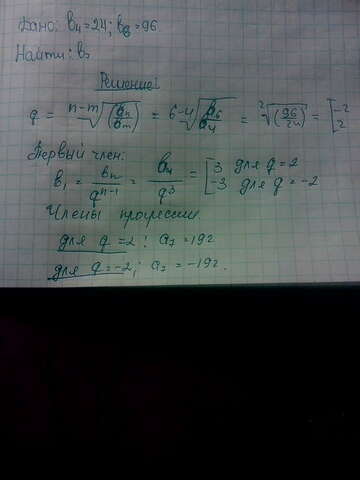 Дано: b₄=24; b₆=96
Найти: b₇
Решение:
q = ⁿ⁻ᵐ√(bₙ/bₘ) = ⁶⁻⁴√(b₆/b₄) = ²√(96/24) = [-2 2
Первый член:
b₁ = bₙ/qⁿ⁻¹ = b₄/q³ = [3 для q=2 -3 для q=-2
Члены прогрессии
для q=2: a₇=192
для q=-2; a₇=-192.